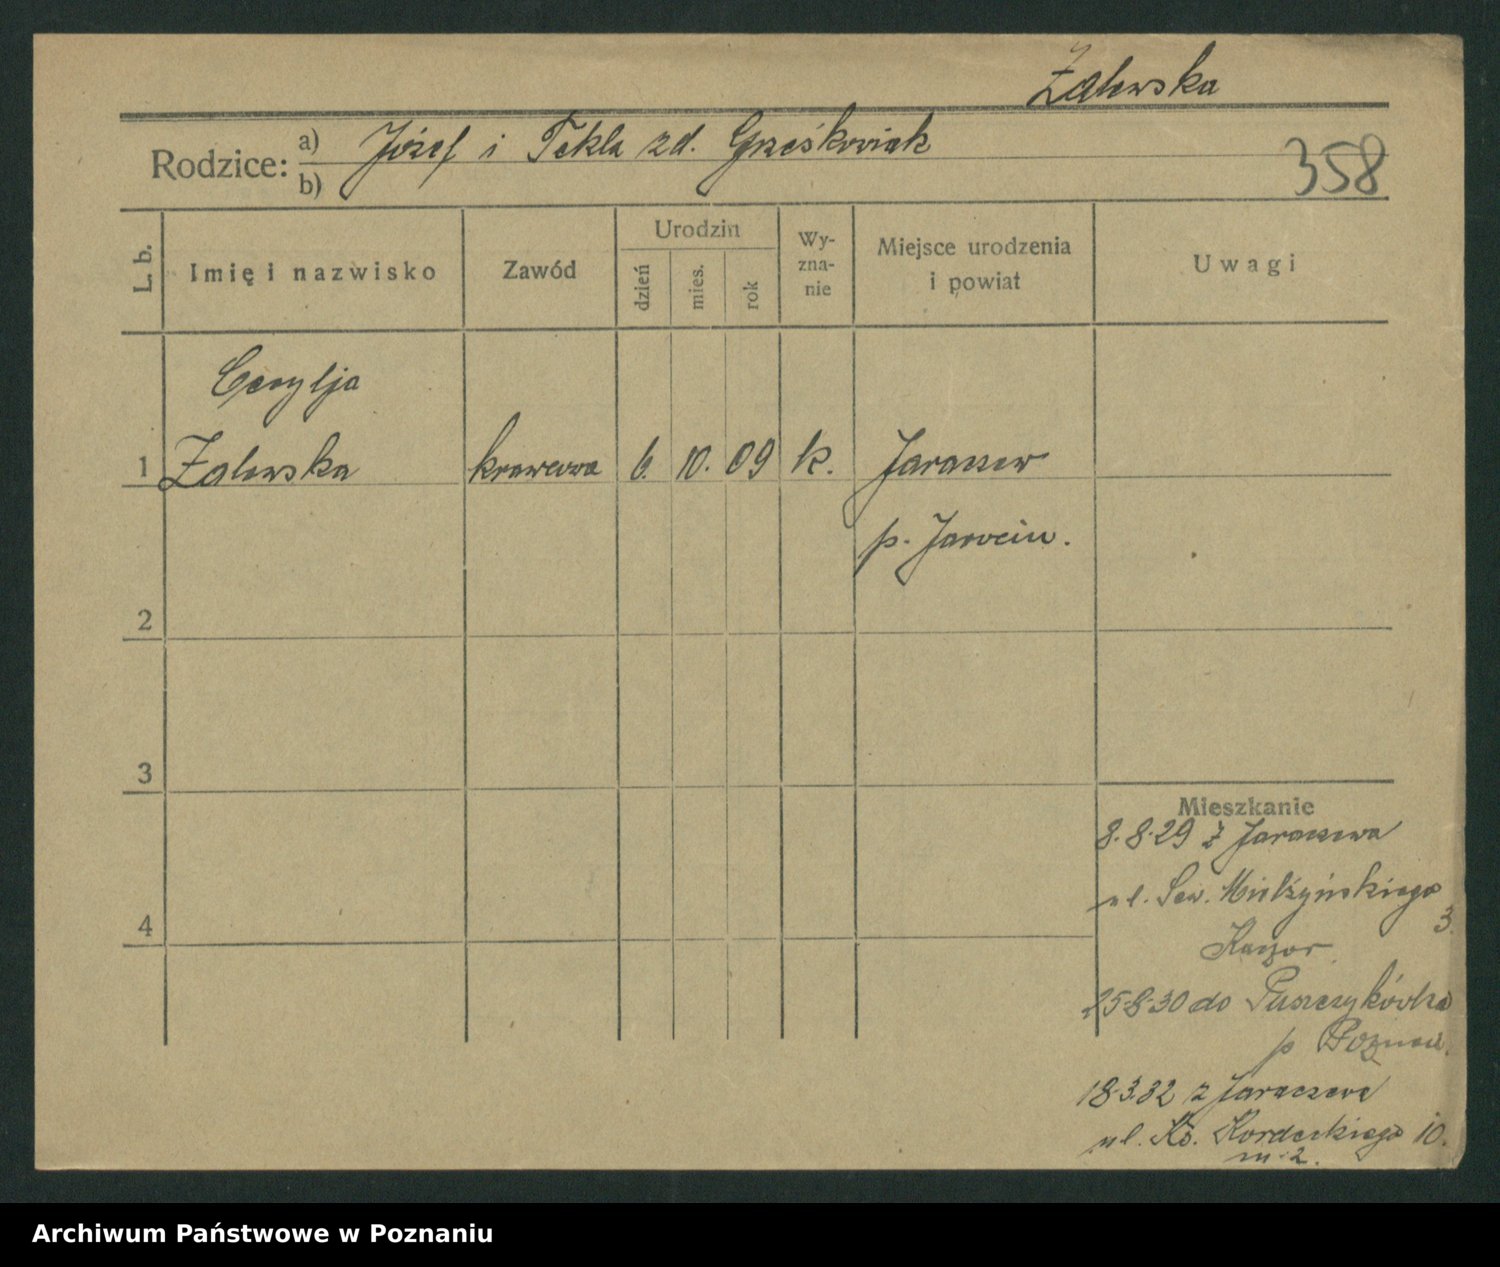 Zalewska
Rodzice: a) Józef i Tekla zd. Grześkowiak
b)
358
L. b.
Imię i nazwisko
Zawód
Urodzin
dzień
mies.
rok
Wy-
zna-
nie
Miejsce urodzenia
i powiat
Uwagi
Cecylja
1 Zalewska krawcowa 6. 10. 09 k. Jaraczew
p. Jarocin.
2
3
4
Mieszkanie
8.8.29 z Jaraczewa
ul. Sew. Mielżyńskiego
3
25.8.30 do Puszczykówka
p Poznań.
18.3.32 z Jaraczewa
ul. Ks. Kordeckiego 10.
m. 2.
Archiwum Państwowe w Poznaniu